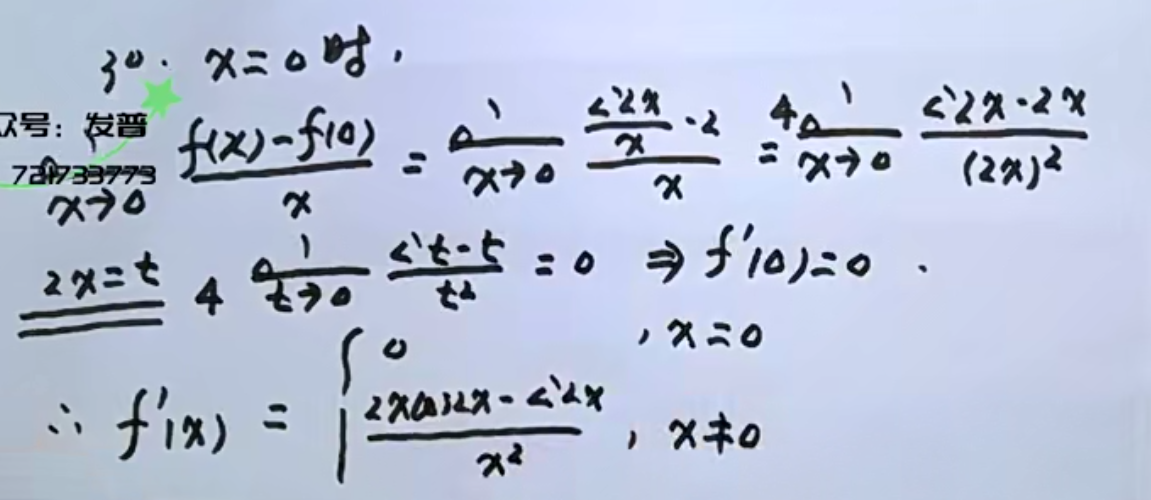 3°. x=0时,
众号：发普
721733773
lim x→0 (f(x)-f(0))/x = lim x→0 (sin2x/x - 2)/x = 4 lim x→0 (sin2x-2x)/(2x)²
2x=t 4 lim t→0 (sint-t)/t² = 0 ⇒ f'(0)=0.
∴ f'(x) = { 0, x=0
(2xcos2x-sin2x)/x², x≠0